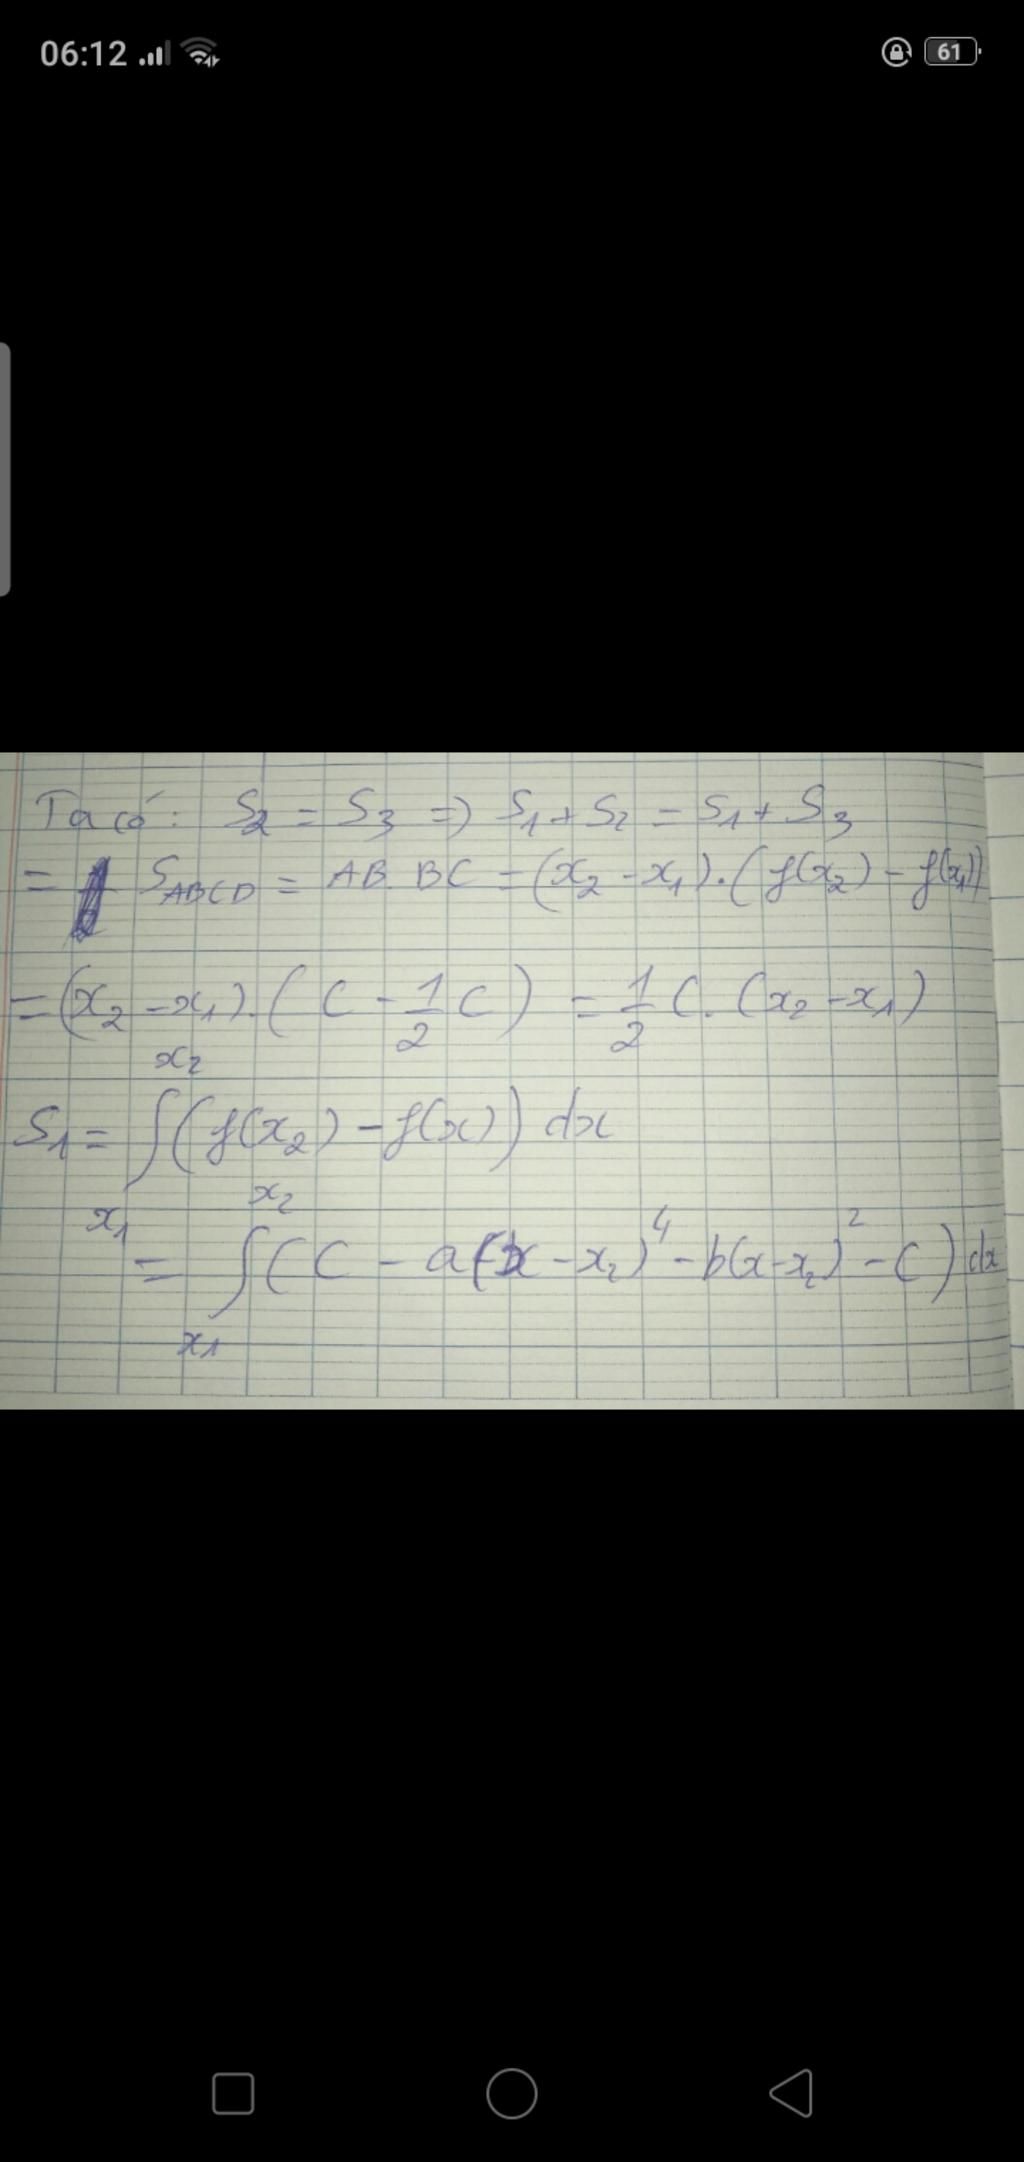 06:12
61
Ta có: S₂ = S₃ => S₁ + S₂ = S₁ + S₃
= S_ABCD = AB. BC = (x₂ - x₁).(f(x₂) - f(x₁))
= (x₂ - x₁).(C - 1/2 C) = 1/2 C. (x₂ - x₁)
S₁ = ∫_{x₁}^{x₂} (f(x₂) - f(x)) dx
= ∫_{x₁}^{x₂} (C - a(x - x₂)⁴ - b(x - x₂)² - C) dx